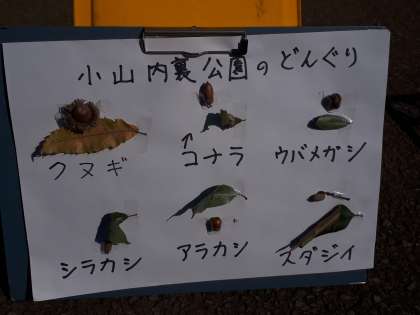 小山内裏公園のどんぐり
クヌギ
↑コナラ
ウバメガシ
シラカシ
アラカシ
スダジイ